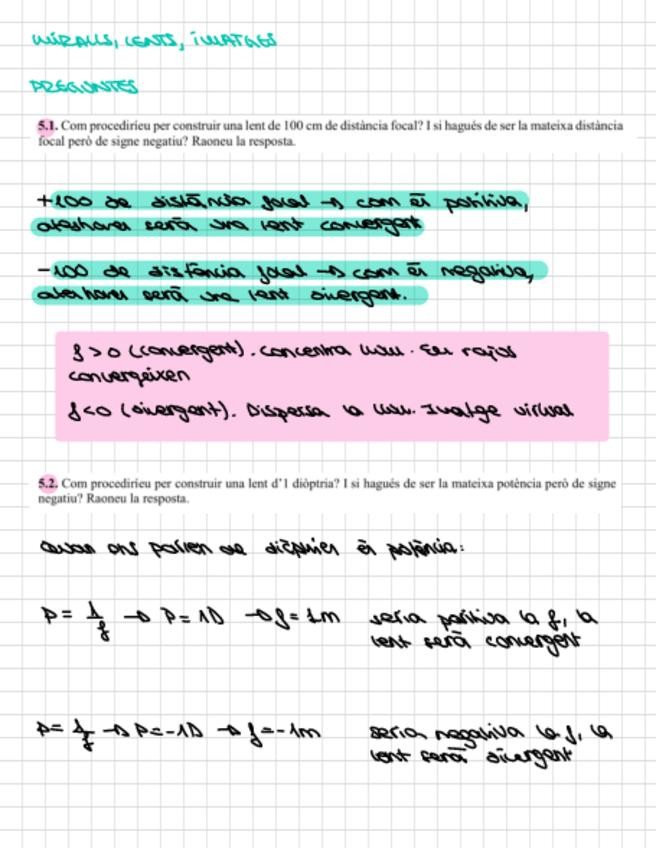 MIRALLS, LENTS, IMATGES
PREGUNTES
5.1. Com procediríeu per construir una lent de 100 cm de distància focal? I si hagués de ser la mateixa distància
focal però de signe negatiu? Raoneu la resposta.
+100 de distància focal → com és positiva,
aleshores serà una lent convergent
-100 de distància focal → com és negativa,
aleshores serà una lent divergent.
f > 0 (convergent). Concentra llum. Els rajos
convergeixen
f < 0 (divergent). Dispersa la llum. Imatge virtual
5.2. Com procediríeu per construir una lent d'1 diòptria? I si hagués de ser la mateixa potència però de signe
negatiu? Raoneu la resposta.
Quan ens parlen de diòptries és potència:
P = 1/f → P = 1D → f = 1m seria positiva la f, la
lent serà convergent
P = 1/f → P = -1D → f = -1m seria negativa la f, la
lent serà divergent